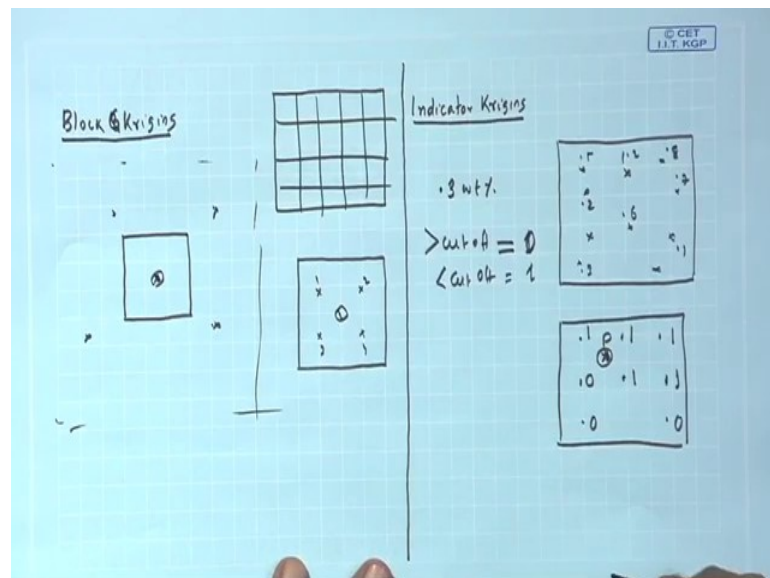 © CET
I.I.T. KGP
Block Kriging
1 2
3
Indicator Kriging
.3 wt%
>cut off = 0
<cut off = 1
1.2 .8
.2
.6
.1 .1 .1
.0 .1
.0 .0